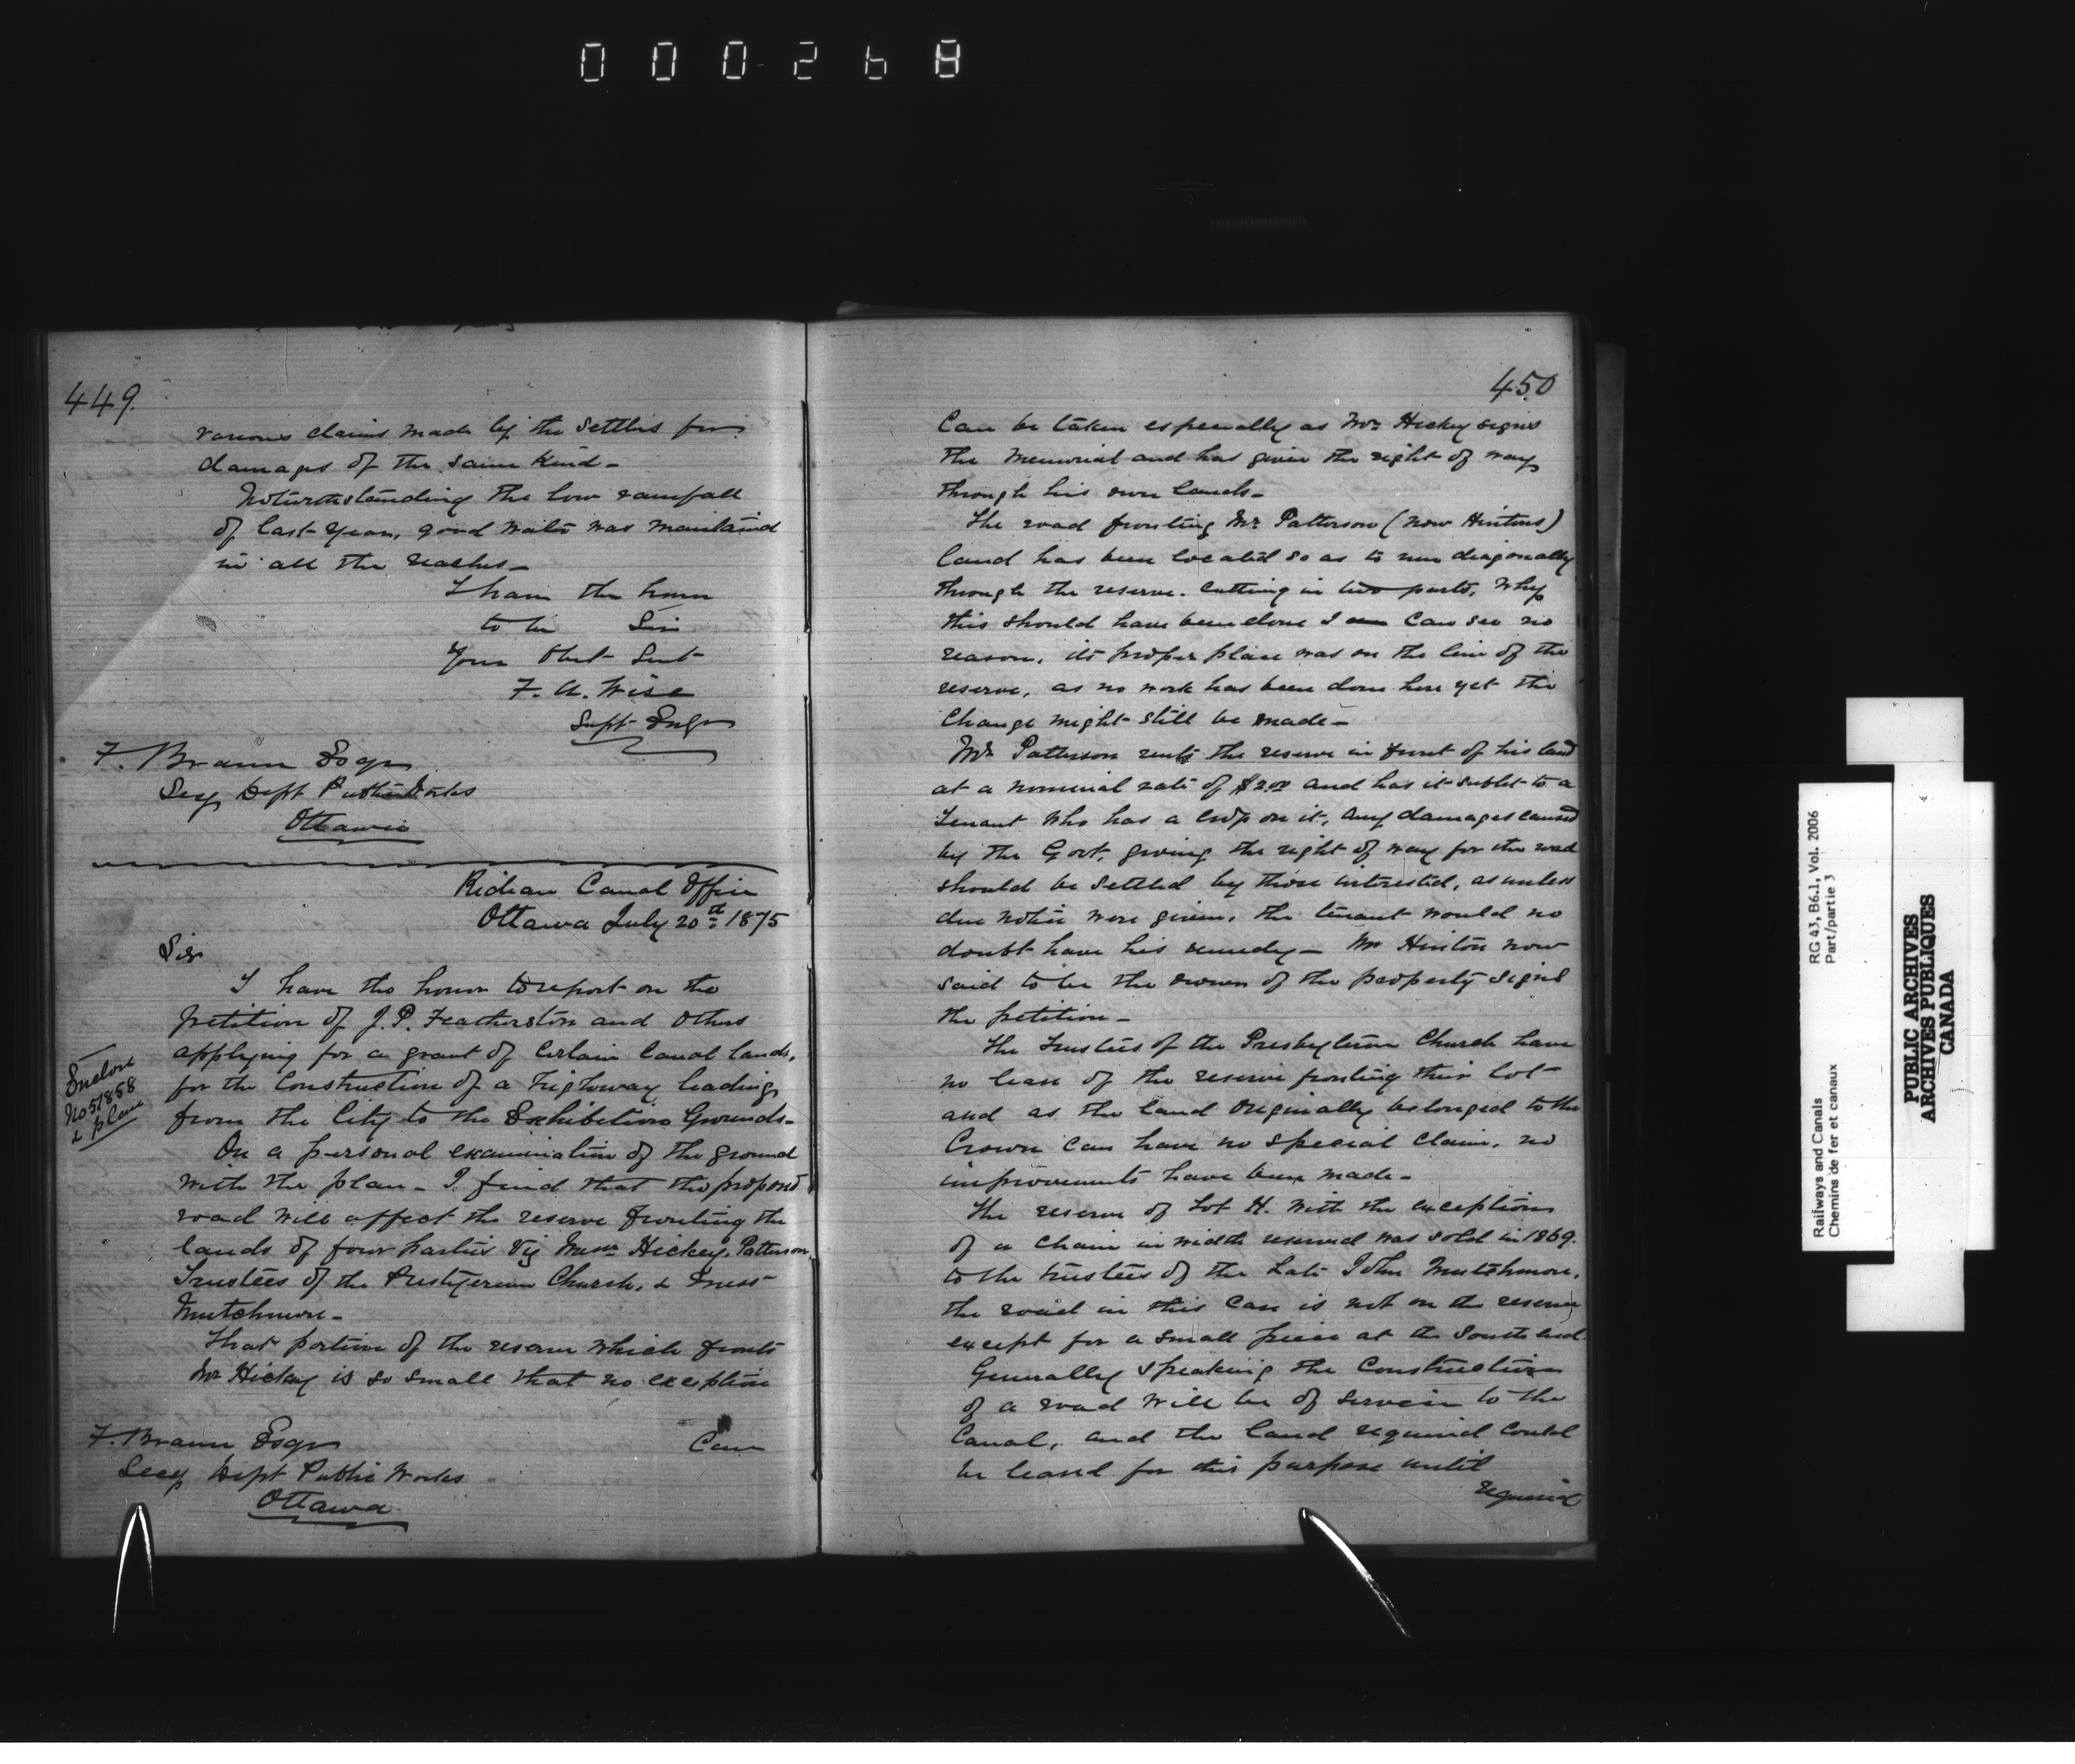 000268
449.
various claims made by the settlers for
damages of the same kind-
Notwithstanding the low rainfall
of last year, good water was maintaind
in all the reaches-
I have the honor
to be Sir
Your Obt Sevt
F. A. Wise
Supt Engr
F. Braun Esqr
Secy Dept Public Works
Ottawa
Rideau Canal Office
Ottawa July 20th 1875
Sir
I have the honor to report on the
petition of J. P. Featherston and others
applying for a grant of certain Canal lands,
for the Construction of a Highway leading
from the City to the Exhibition Grounds-
Enclose
No 51858
& plan
On a personal examination of the ground
with the plan- I find that the proposd
road will affect the reserve fronting the
lands of four parties Viz Messrs Hickey, Patterson,
Trustees of the Presbyterian Church, &
Mutchmore-
That portion of the reserve which fronts
Mr Hickey is so small that no exception
F. Braun Esqr
Secy Dept Public Works
Ottawa
Can
450
Can be taken especially as Mr Hickey signs
the Memorial and has given the right of way
through his own lands-
The road fronting Mr Patterson (now Hintons)
land has been located so as to run diagonally
through the reserve. cutting in two parts, Why
this should have been done I can see no
reason, its proper place was on the line of the
reserve, as no work has been done here yet the
Change might still be made-
Mr Patterson rents the reserve in front of his land
at a nominal rate of $2.00 and has it sublet to a
Tenant who has a crop on it, any damages caused
by the Govt. giving the right of way for the road
should be settled by those interested, as unless
due notice were given, the tenant would no
doubt have his remedy- Mr Hinton now
said to be the owner of the property signs
the petition-
The Trustees of the Presbyterian Church have
no lease of the reserve fronting their lot
and as the land originally belonged to the
Crown can have no special claim, no
improvements have been made-
The reserve of Lot H. with the exception
of a chain in width reserved was sold in 1869.
to the trustees of the Late John Mutchmore,
the road in this case is not on the reserve
except for a small piece at the South end.
Generally speaking the Construction
of a road will be of service to the
Canal, and the land required could
be leased for this purpose until
required
Railways and Canals
Chemins de fer et canaux
RG 43, B6.1, Vol. 2006
Part/partie 3
PUBLIC ARCHIVES
ARCHIVES PUBLIQUES
CANADA